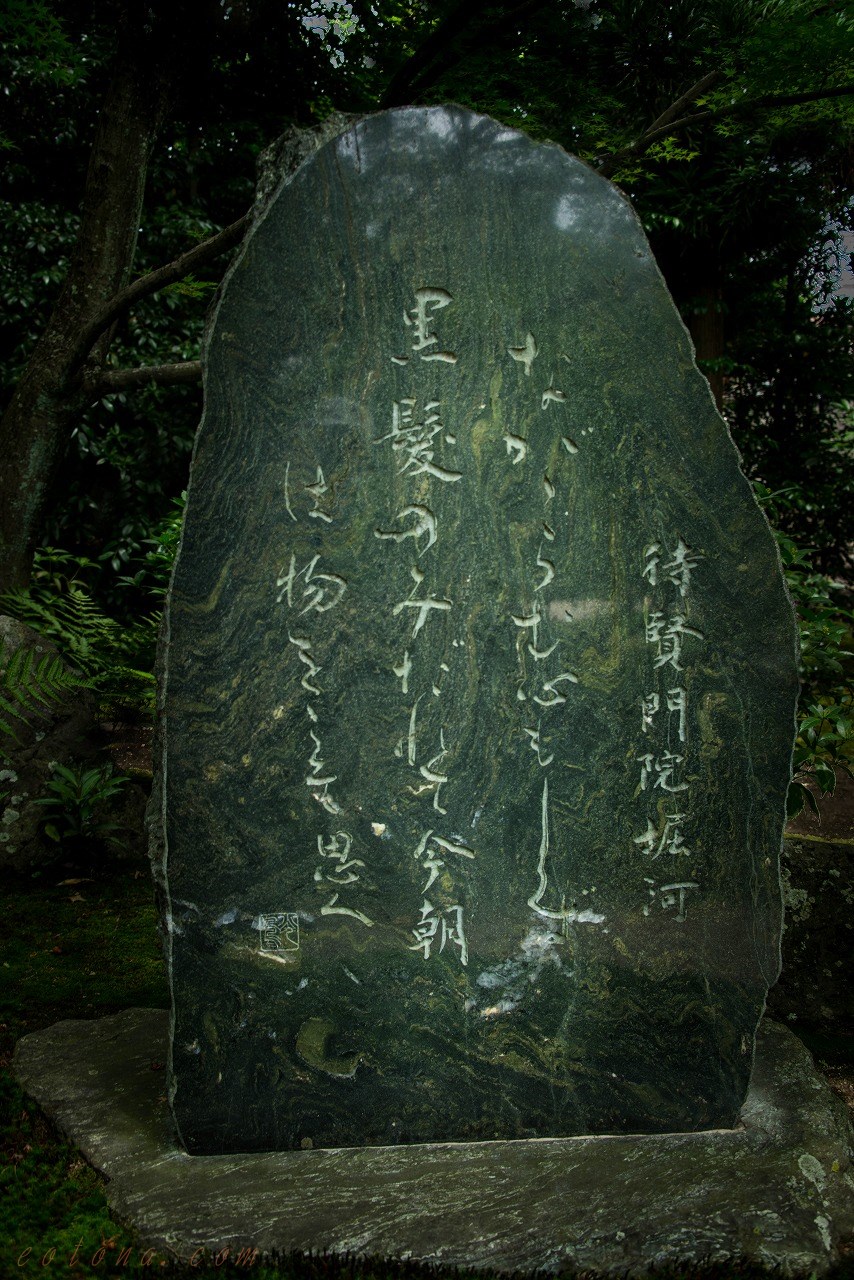 待賢門院堀河
ながゝらむ心もしらず
黒髪のみだれて今朝
は物をこそ思へ
cotona.com